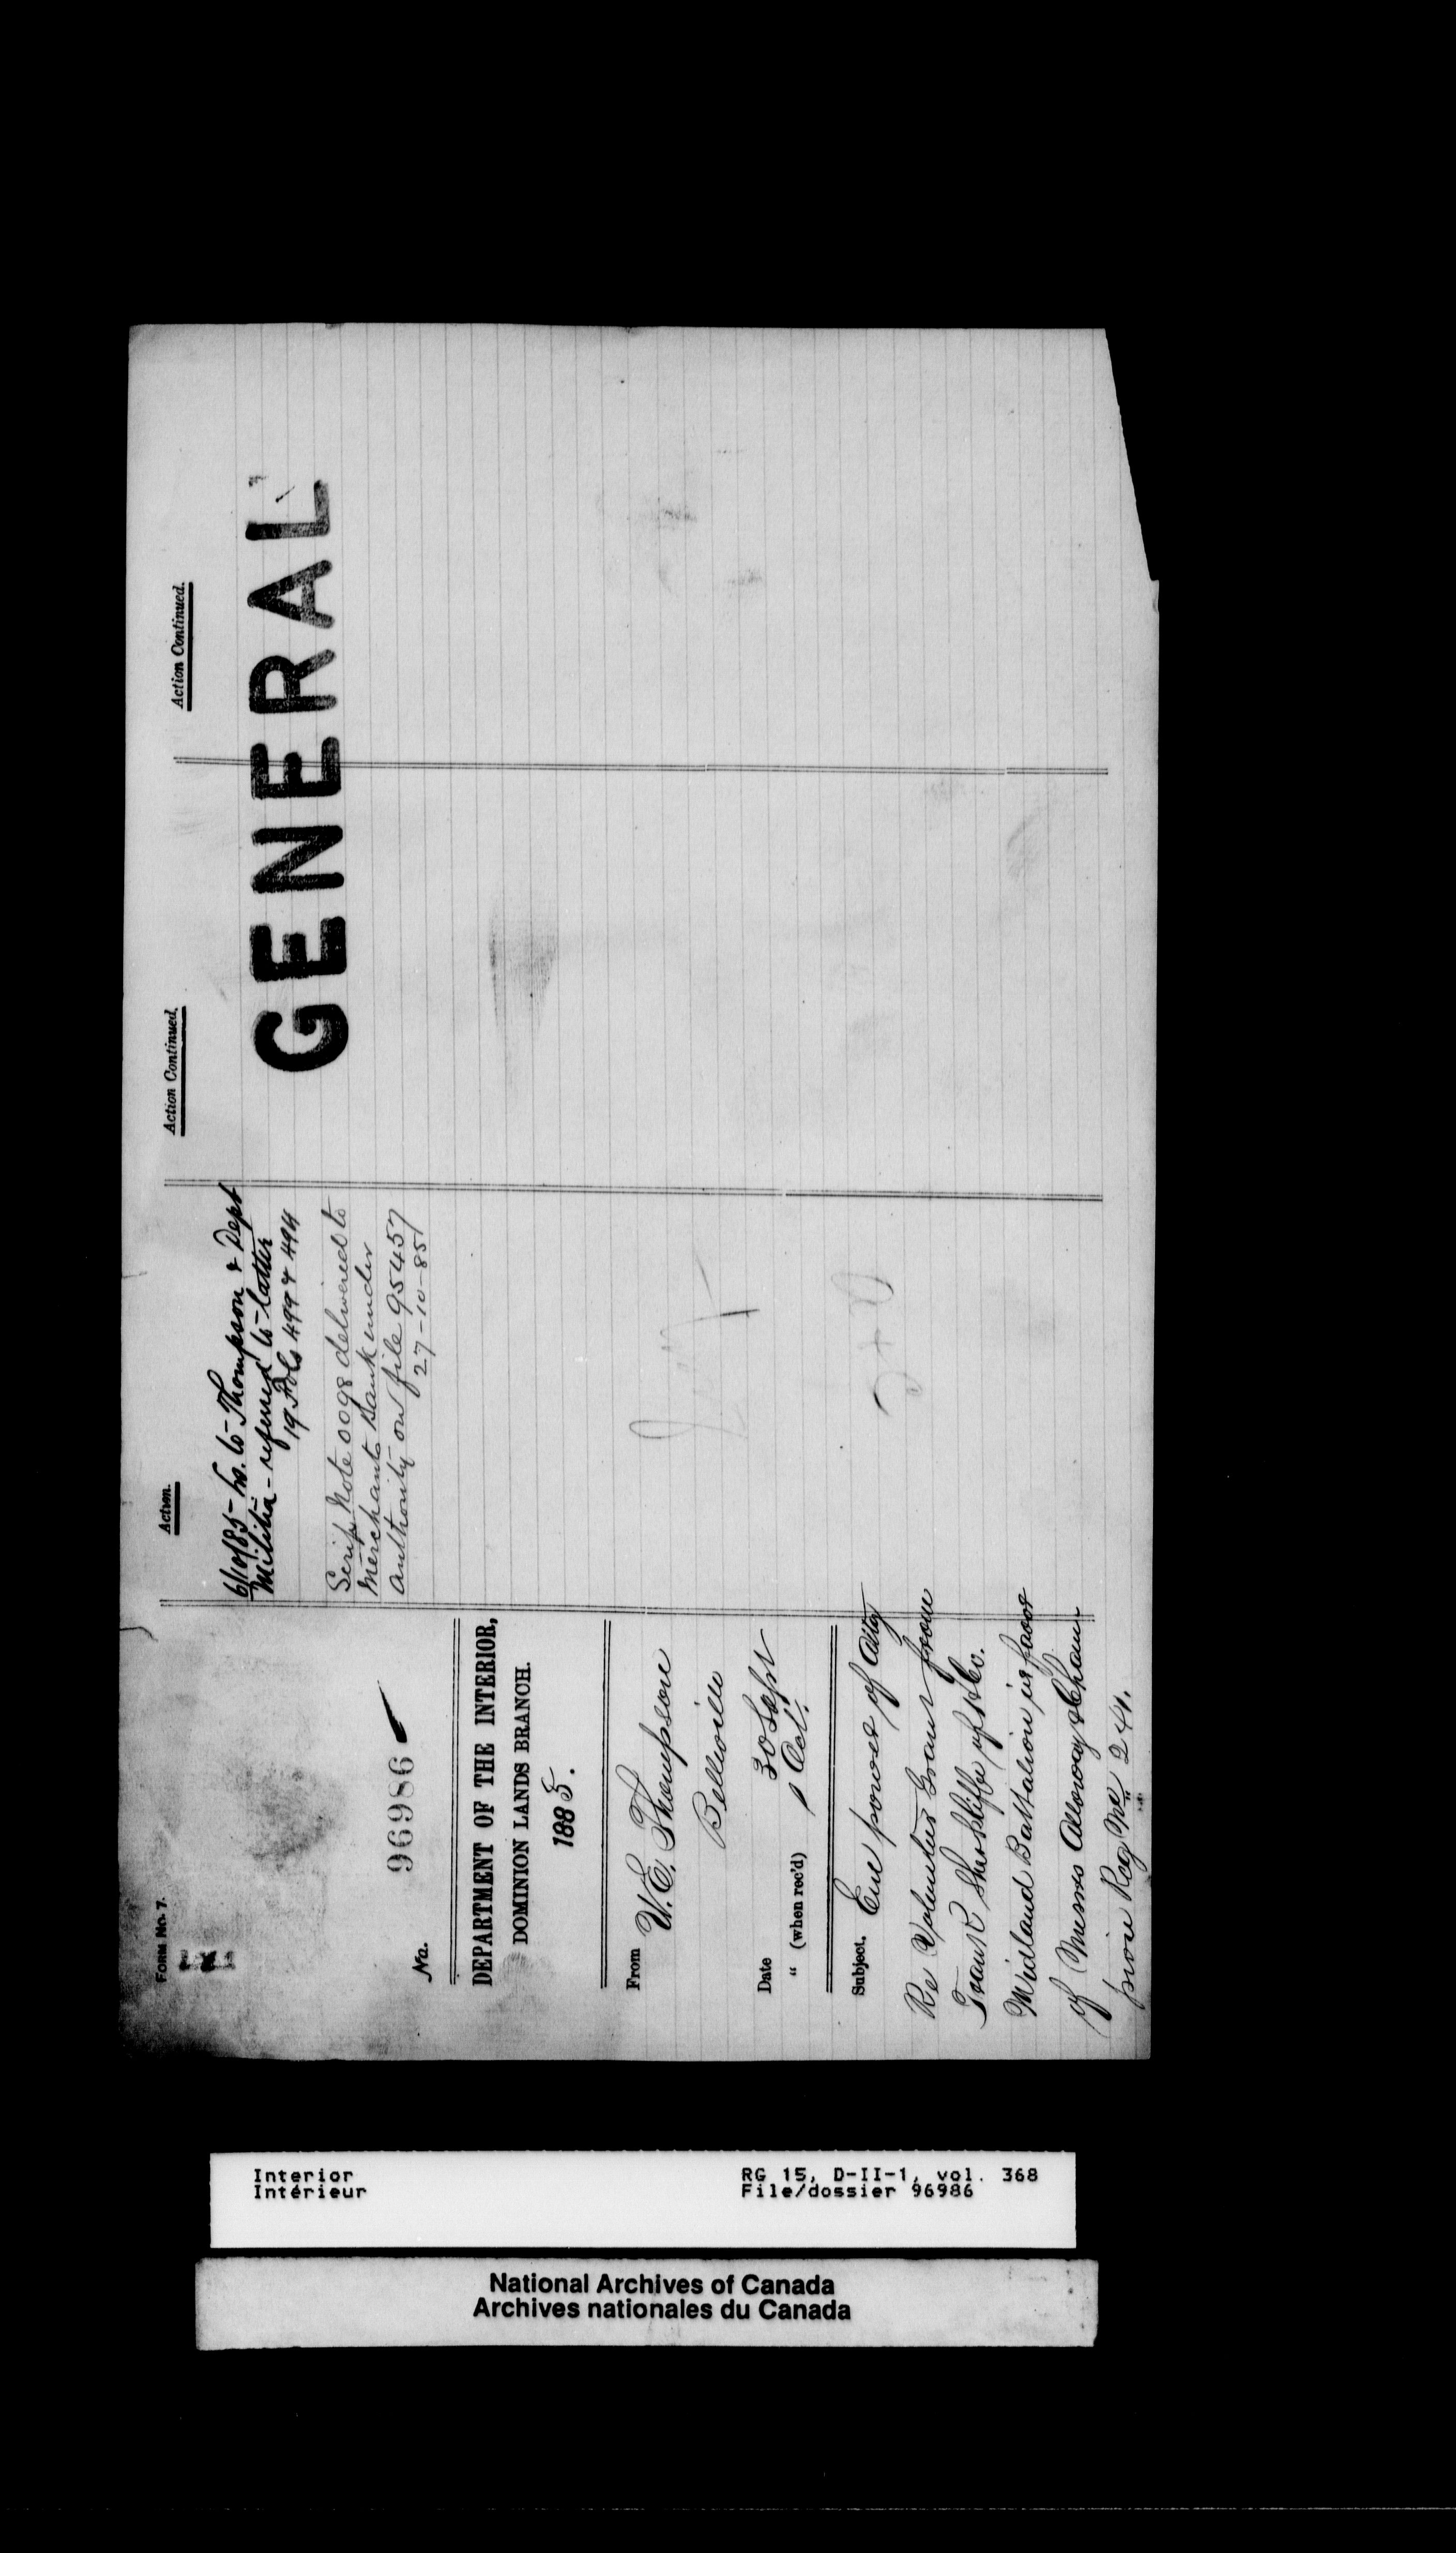 FORM No. 7.
No. 96986
DEPARTMENT OF THE INTERIOR,
DOMINION LANDS BRANCH.
1885.
From W. E. Thompson
Belleville
Date 30 Sept
" (when rec'd) 1 Oct.
Subject, Enc power of atty
Re Volunteer Grant from
Frank of H Co.
Midland Battalion in favor
of Messrs Alloway & Cham
pion Reg No 241.
Action.
6/10/85 - to Thompson & Dept
Militia - referred to latter
19 Fols 499 & 494
Scrip Note 0098 delivered to
Merchants Bank under
authority on file 95457
27-10-85
Action Continued.
Action Continued.
GENERAL
Interior
Intérieur
RG 15, D-II-1, vol. 368
File/dossier 96986
National Archives of Canada
Archives nationales du Canada